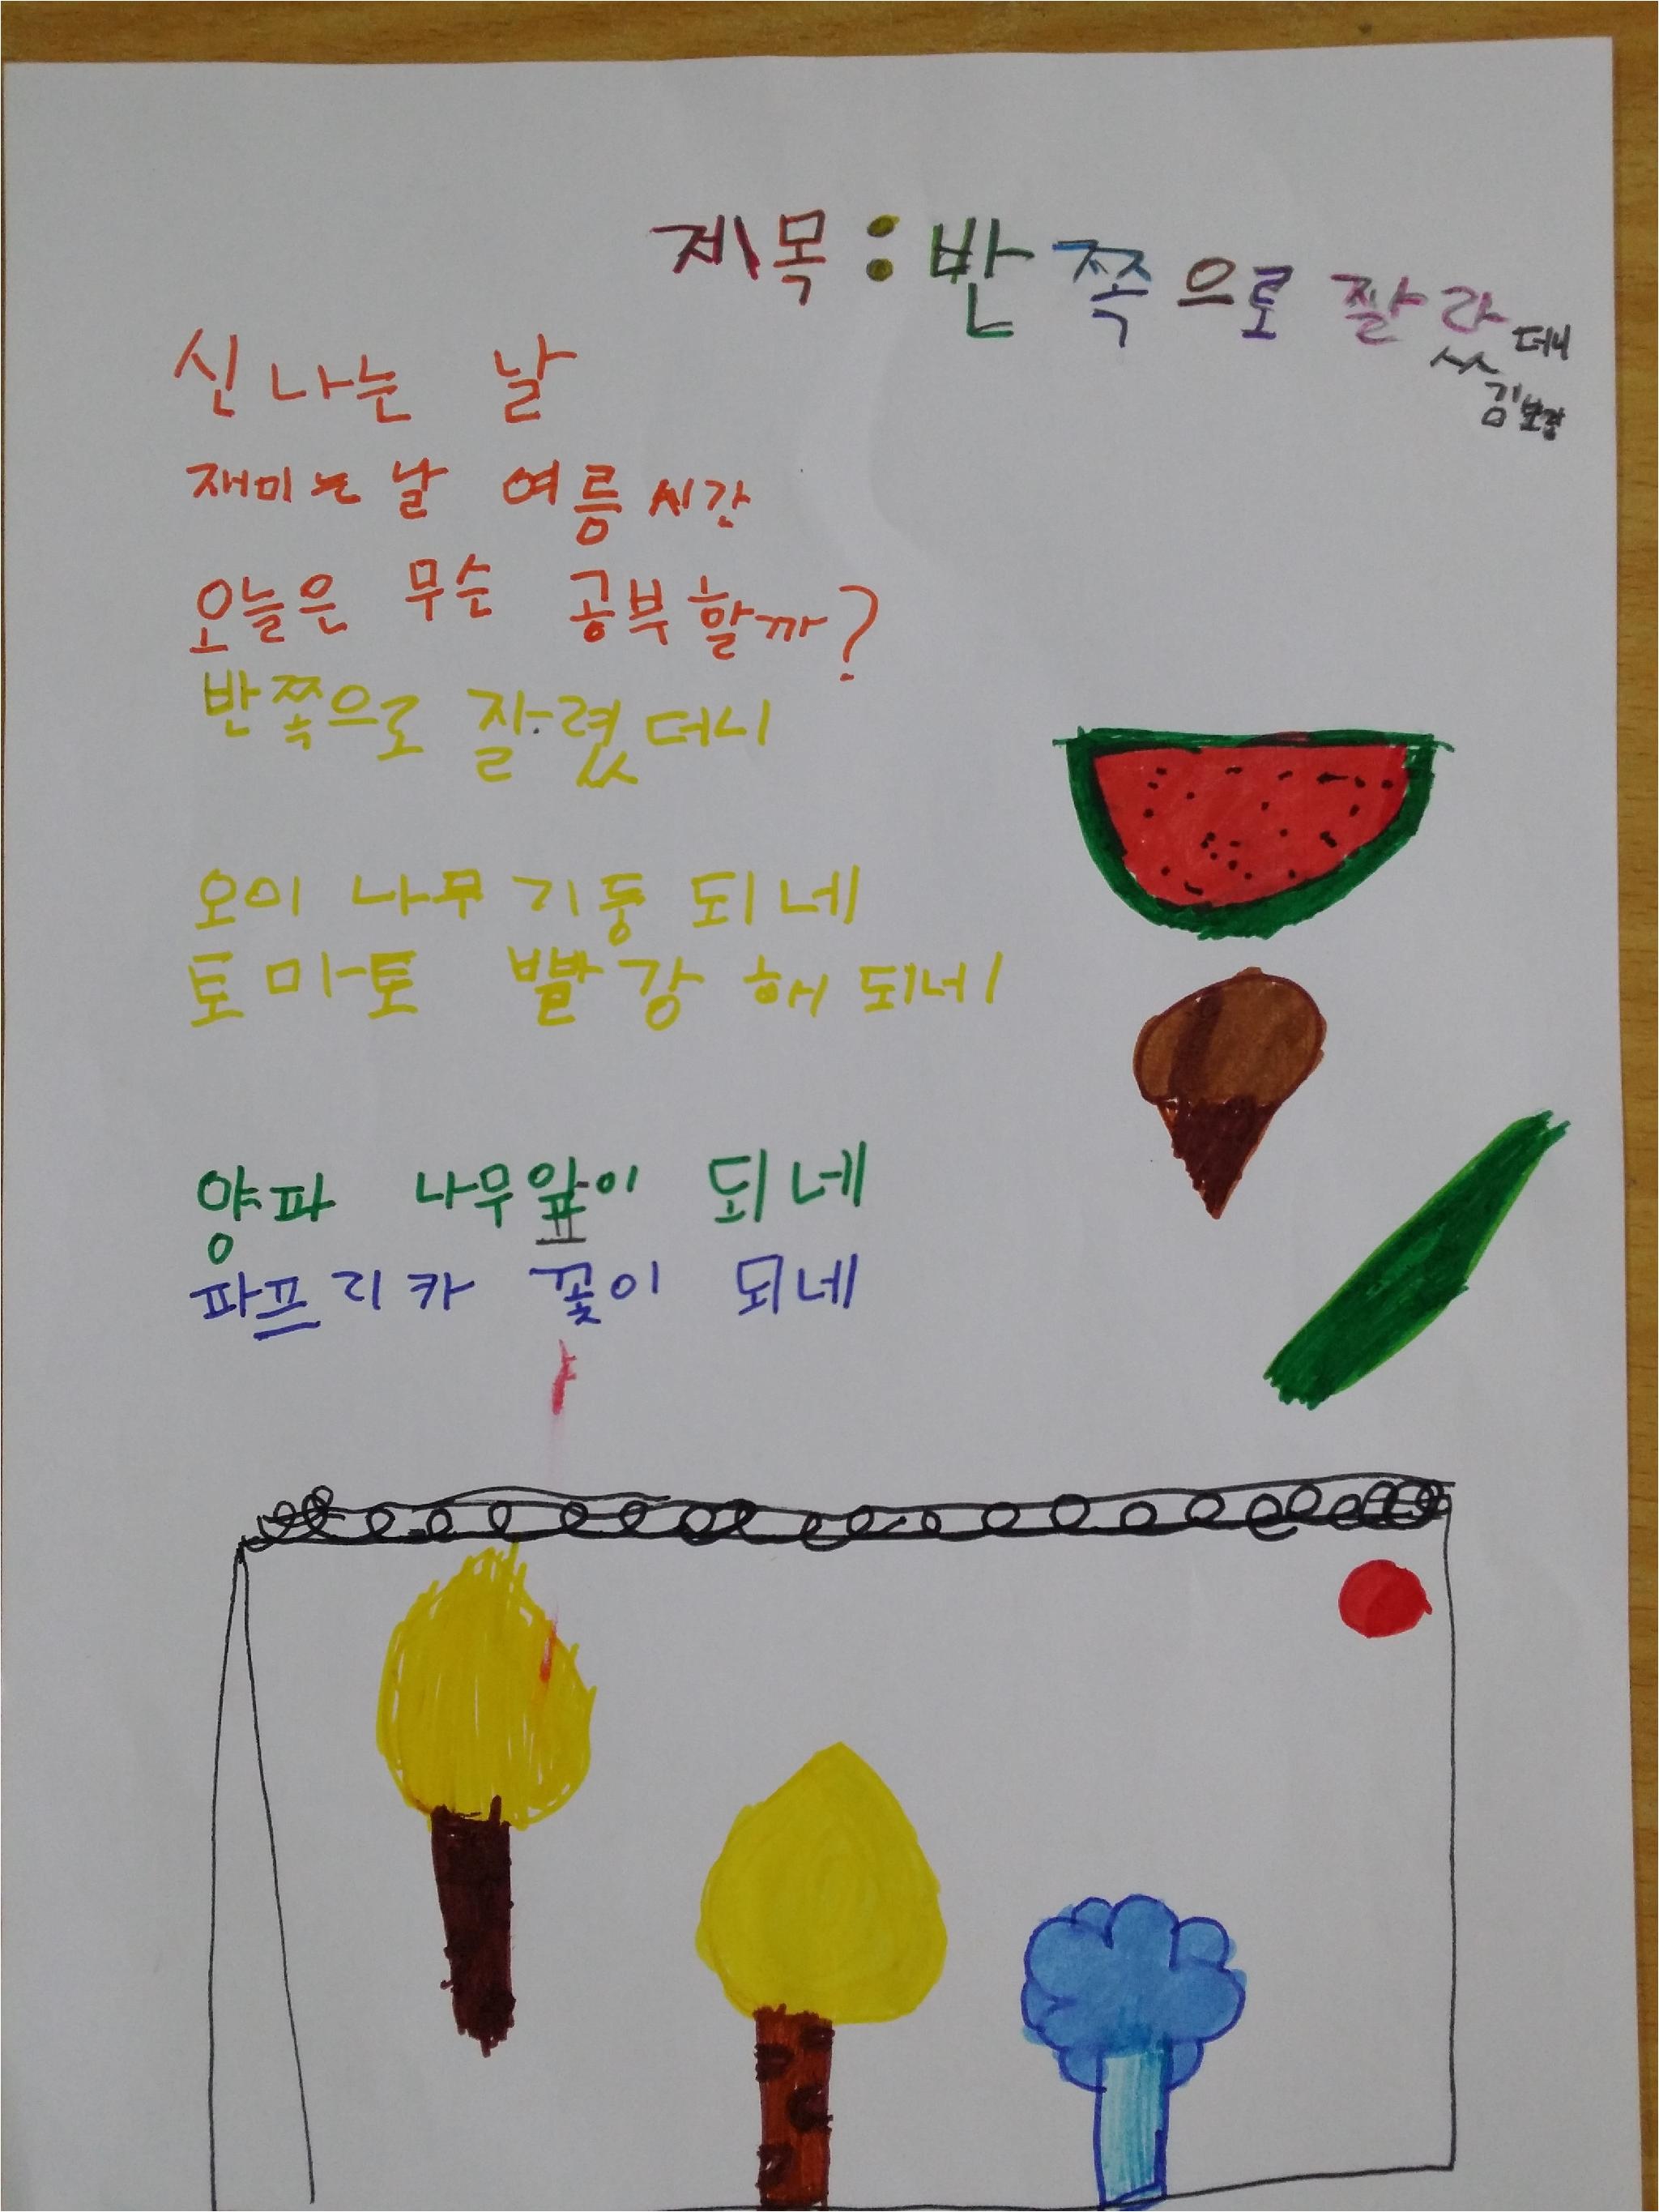 제목 : 반쪽으로 잘랐데니
신나는 날
재미는날 여름시간
오늘은 무슨 공부할까?
반쪽으로 잘렸더니
오이 나무기둥 되네
토마토 빨강 해 되네
양파 나무앞이 되네
파프리카 꽃이 되네